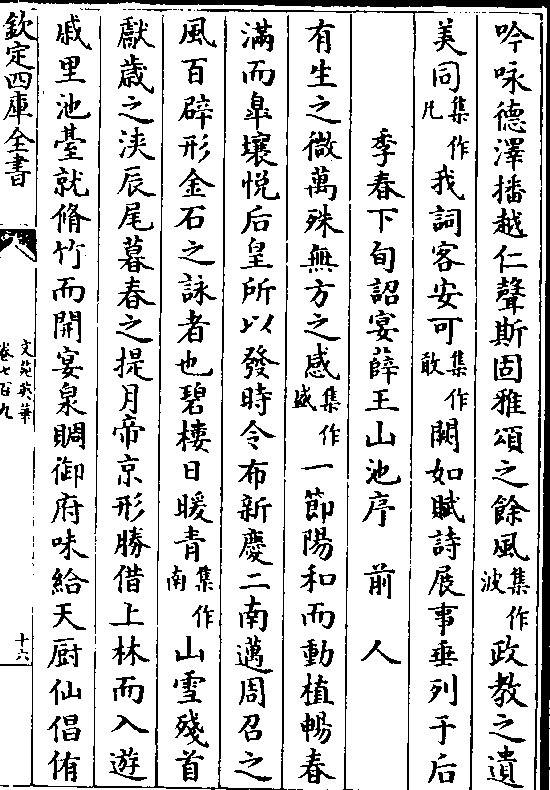 吟咏德澤播越仁聲斯固雅頌之餘風集作波政教之遺
美同集作凡我詞客安可集作敢闕如賦詩展事垂列于后
季春下旬詔宴薛王山池序　前人
有生之微萬殊無方之感集作盛一節陽和而動植暢春
滿而臯壤悅后皇所以發時令布新慶二南邁周召之
風百辟形金石之詠者也碧樓日暖青集作南山雪殘首
獻歲之浹辰尾暮春之提月帝京形勝借上林而入遊
戚里池臺就脩竹而開宴泉賙御府味給天厨仙倡侑
欽定四庫全書
文苑英華
卷七百九
十六